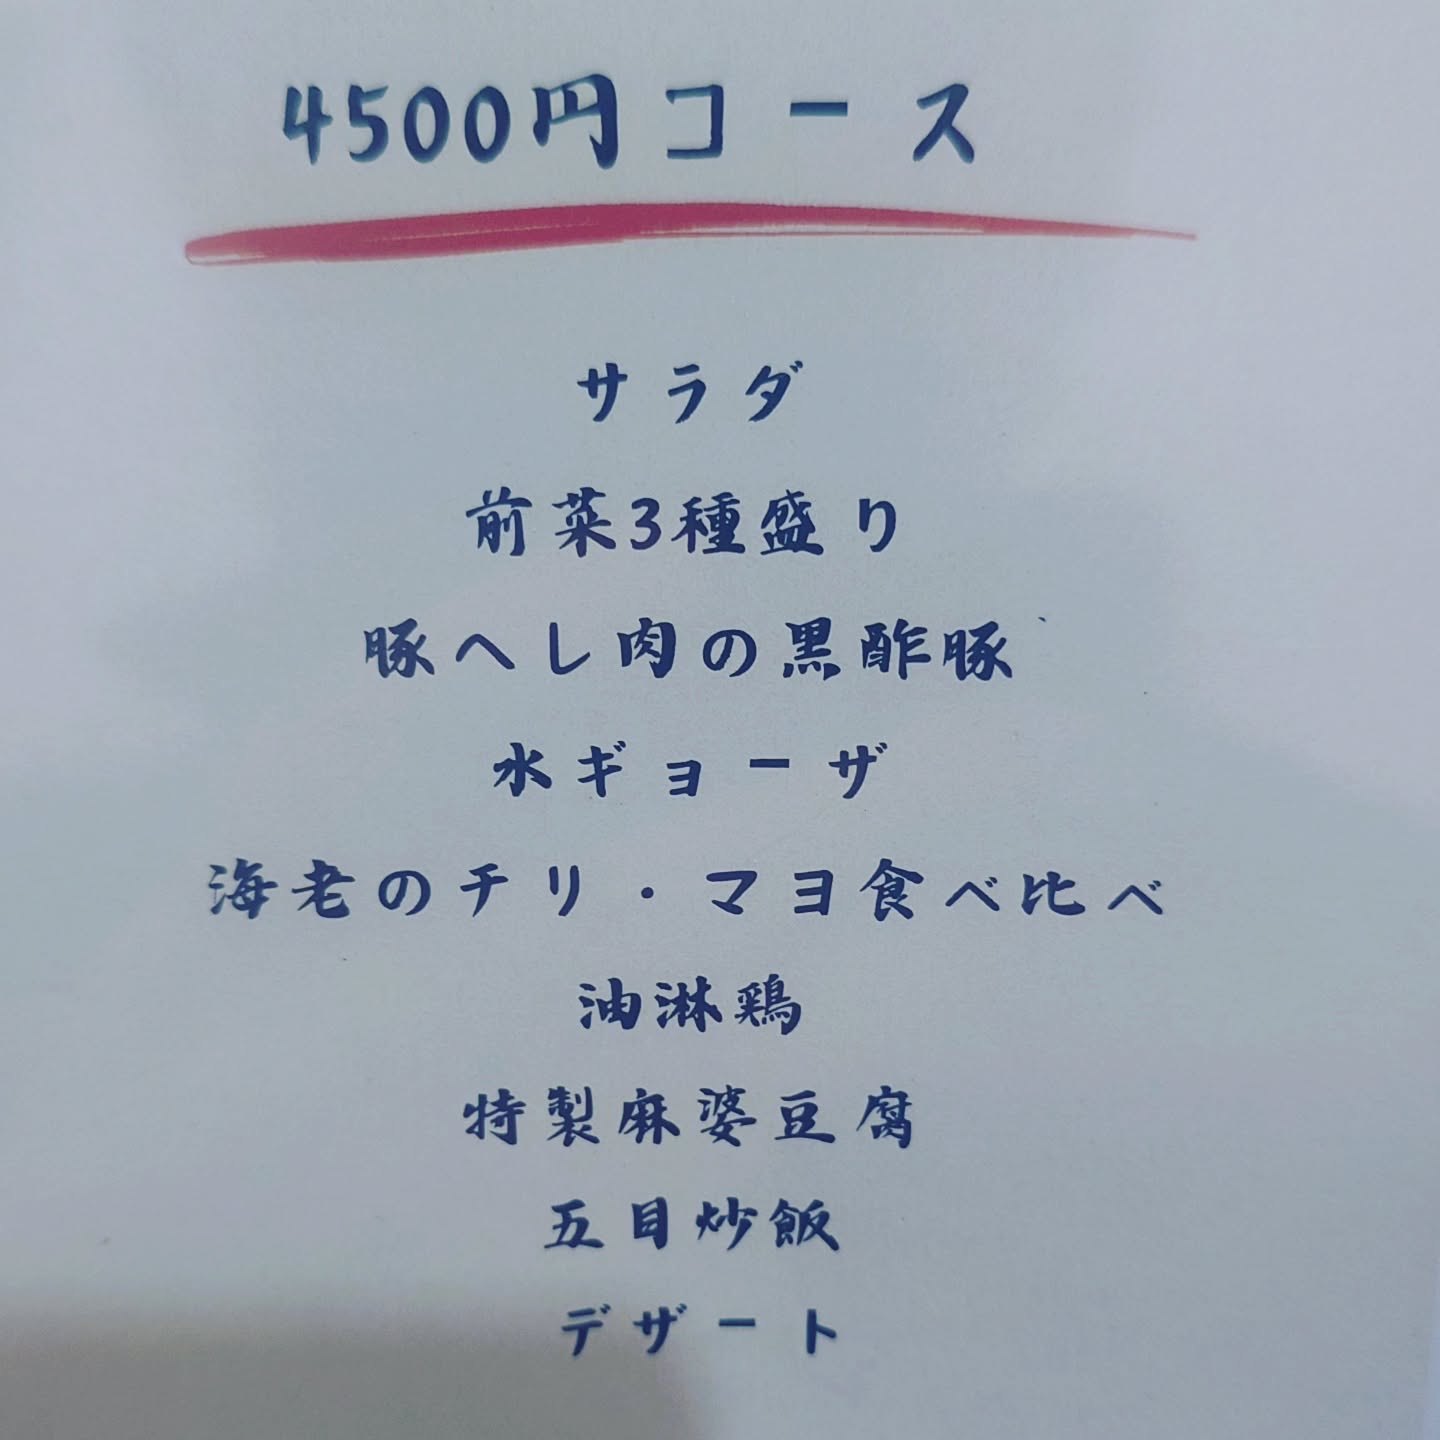 4500円コース
サラダ
前菜3種盛り
豚へし肉の黒酢豚
水ギョーザ
海老のチリ・マヨ食べ比べ
油淋鶏
特製麻婆豆腐
五目炒飯
デザート